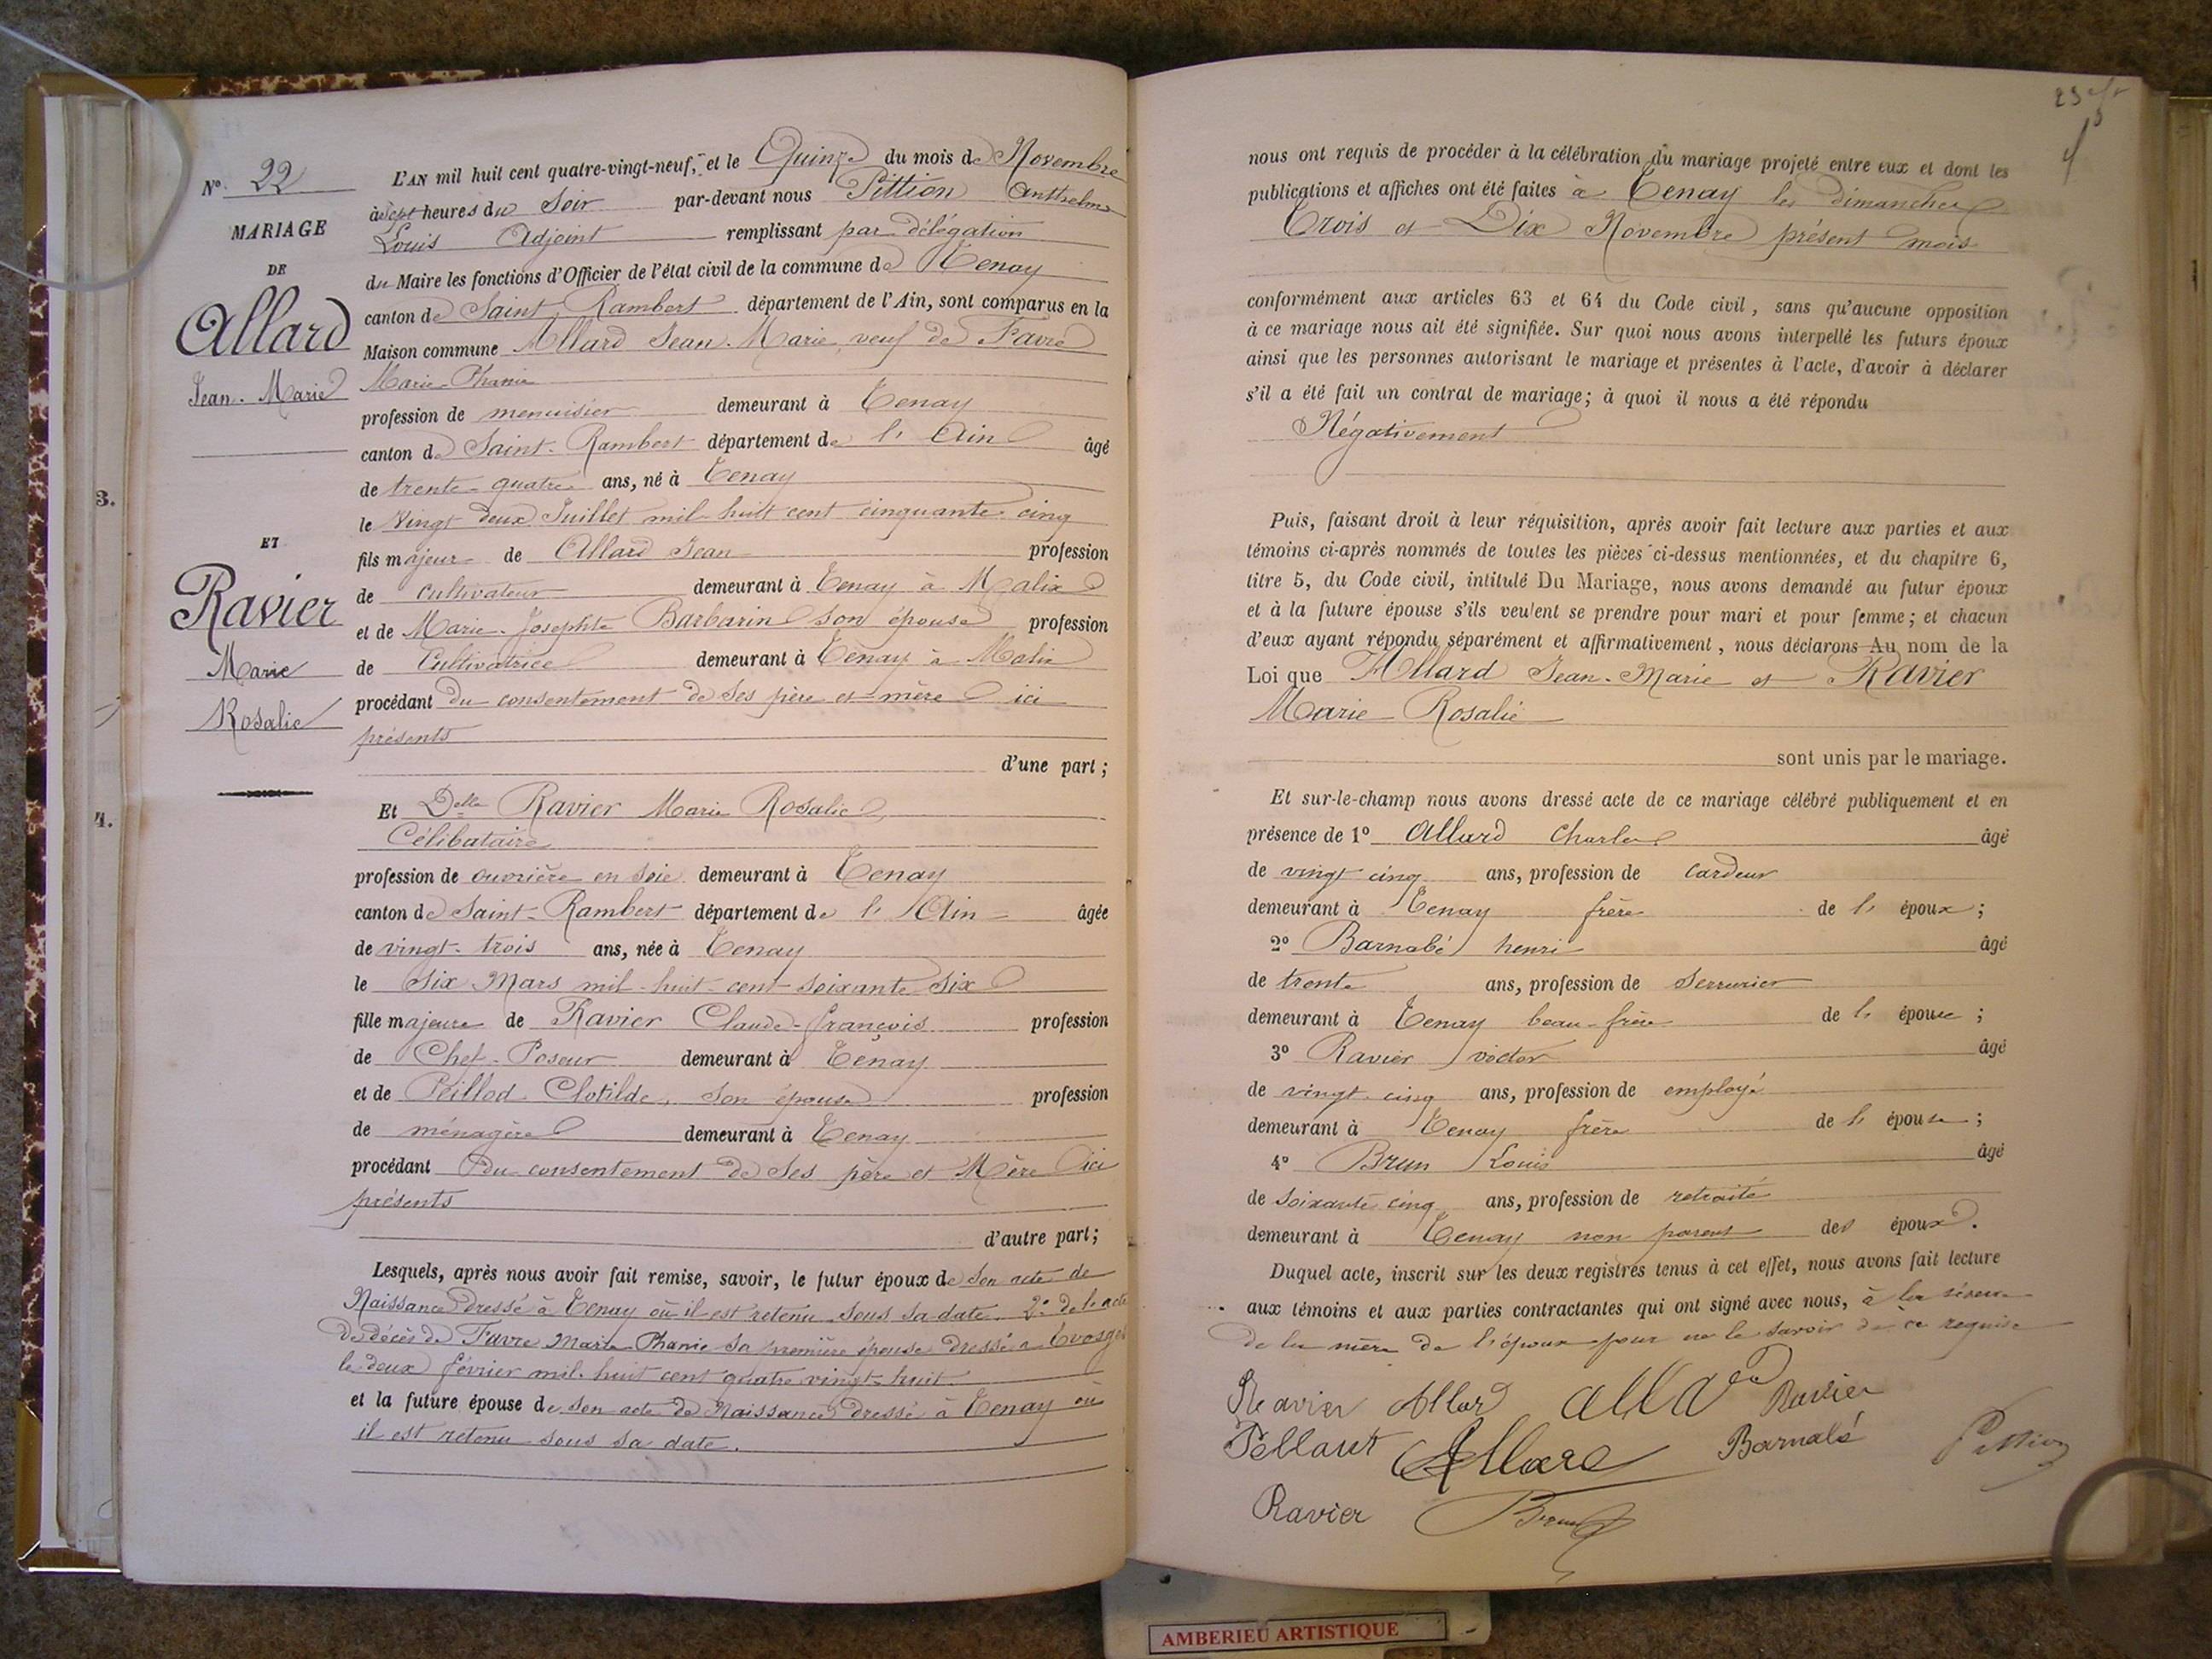 N° 22
MARIAGE
DE
Allard
Jean-Marie
ET
Ravier
Marie
Rosalie
3.
4.
L'AN mil huit cent quatre-vingt-neuf, et le Quinze du mois de Novembre
à sept heures du Soir par-devant nous Pittion Anthelme
Louis Adjoint remplissant par délégation
du Maire les fonctions d'Officier de l'état civil de la commune de Tenay
canton de Saint Rambert département de l'Ain, sont comparus en la
Maison commune Allard Jean-Marie veuf de Favre
Marie-Phanie
profession de menuisier demeurant à Tenay
canton de Saint-Rambert département de l'Ain âgé
de trente-quatre ans, né à Tenay
le Vingt deux Juillet mil huit cent cinquante cinq
fils majeur de Allard Jean profession
de cultivateur demeurant à Tenay à Malix
et de Marie-Josephte Barbarin son épouse profession
de Cultivatrice demeurant à Tenay à Malix
procédant du consentement de ses père et mère ici
présents
d'une part ;
Et Delle Ravier Marie Rosalie
Célibataire
profession de ouvrière en soie demeurant à Tenay
canton de Saint-Rambert département de l'Ain âgée
de vingt-trois ans, née à Tenay
le Six Mars mil-huit-cent-soixante Six
fille majeure de Ravier Claude-françois profession
de Chef-Poseur demeurant à Tenay
et de Peillod Clotilde, son épouse profession
de ménagère demeurant à Tenay
procédant Du consentement de Ses père et Mère ici
présents
d'autre part ;
Lesquels, après nous avoir fait remise, savoir, le futur époux de son acte de
Naissance dressé à Tenay où il est retenu sous sa date. 2° de l'acte
de décès de Favre Marie Phanie sa première épouse dressé à Evosges
le deux février mil-huit cent quatre vingt-huit
et la future épouse de son acte de Naissance dressé à Tenay où
il est retenu sous sa date.
nous ont requis de procéder à la célébration du mariage projeté entre eux et dont les
publications et affiches ont été faites à Tenay les dimanches
Trois et Dix Novembre présent mois
conformément aux articles 63 et 64 du Code civil, sans qu'aucune opposition
à ce mariage nous ait été signifiée. Sur quoi nous avons interpellé les futurs époux
ainsi que les personnes autorisant le mariage et présentes à l'acte, d'avoir à déclarer
s'il a été fait un contrat de mariage; à quoi il nous a été répondu
Négativement
Puis, faisant droit à leur réquisition, après avoir fait lecture aux parties et aux
témoins ci-après nommés de toutes les pièces ci-dessus mentionnées, et du chapitre 6,
titre 5, du Code civil, intitulé Du Mariage, nous avons demandé au futur époux
et à la future épouse s'ils veulent se prendre pour mari et pour femme; et chacun
d'eux ayant répondu séparément et affirmativement, nous déclarons Au nom de la
Loi que Allard Jean-Marie et Ravier
Marie-Rosalie
sont unis par le mariage.
Et sur-le-champ nous avons dressé acte de ce mariage célébré publiquement et en
présence de 1° Allard Charles âgé
de vingt cinq ans, profession de cardeur
demeurant à Tenay frère de l'époux ;
2° Barnabé henri âgé
de trente ans, profession de Serrurier
demeurant à Tenay beau-frère de l'époux ;
3° Ravier victor âgé
de vingt-cinq ans, profession de employé
demeurant à Tenay frère de l'épouse ;
4° Brun Louis âgé
de soixante cinq ans, profession de retraité
demeurant à Tenay non parent des époux.
Duquel acte, inscrit sur les deux registres tenus à cet effet, nous avons fait lecture
aux témoins et aux parties contractantes qui ont signé avec nous, à la réserve
de la mère de l'époux pour ne le savoir de ce requise
Ravier Allard Allard Ravier
Pellaut Allard Barnabé Pittion
Ravier Brun
AMBERIEU ARTISTIQUE